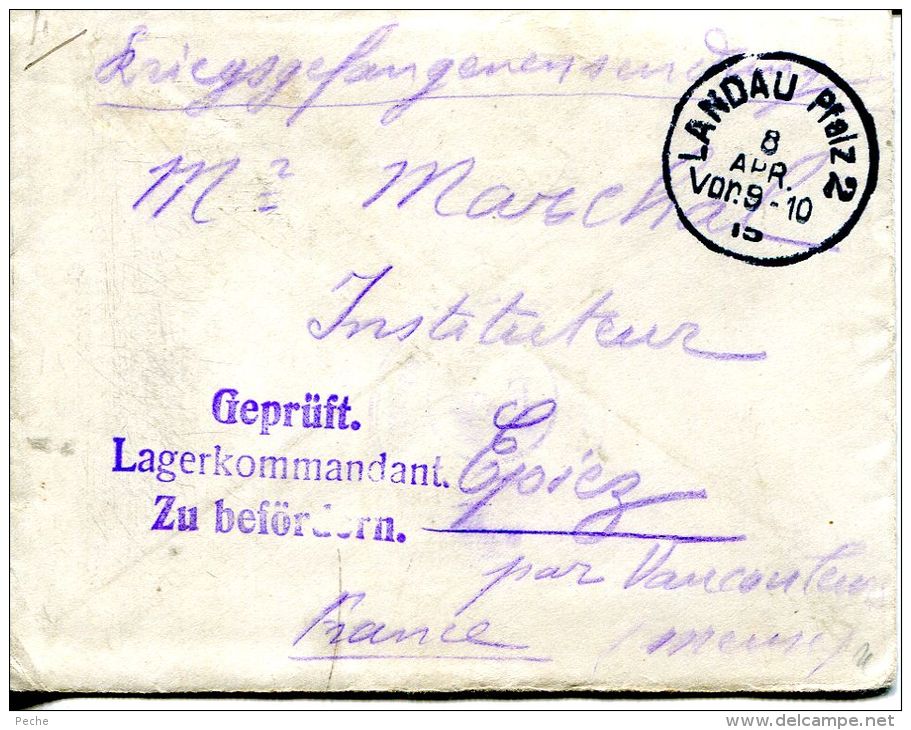 Kriegsgefangenensendung
LANDAU Pfalz 2
8
APR.
Vor. 9-10
15
Mr Marschal
Instituteur
Geprüft.
Lagerkommandant.
Zu befördern.
Epiez
par Vaucouleurs
France (Meuse)
Peche
delcampe.net